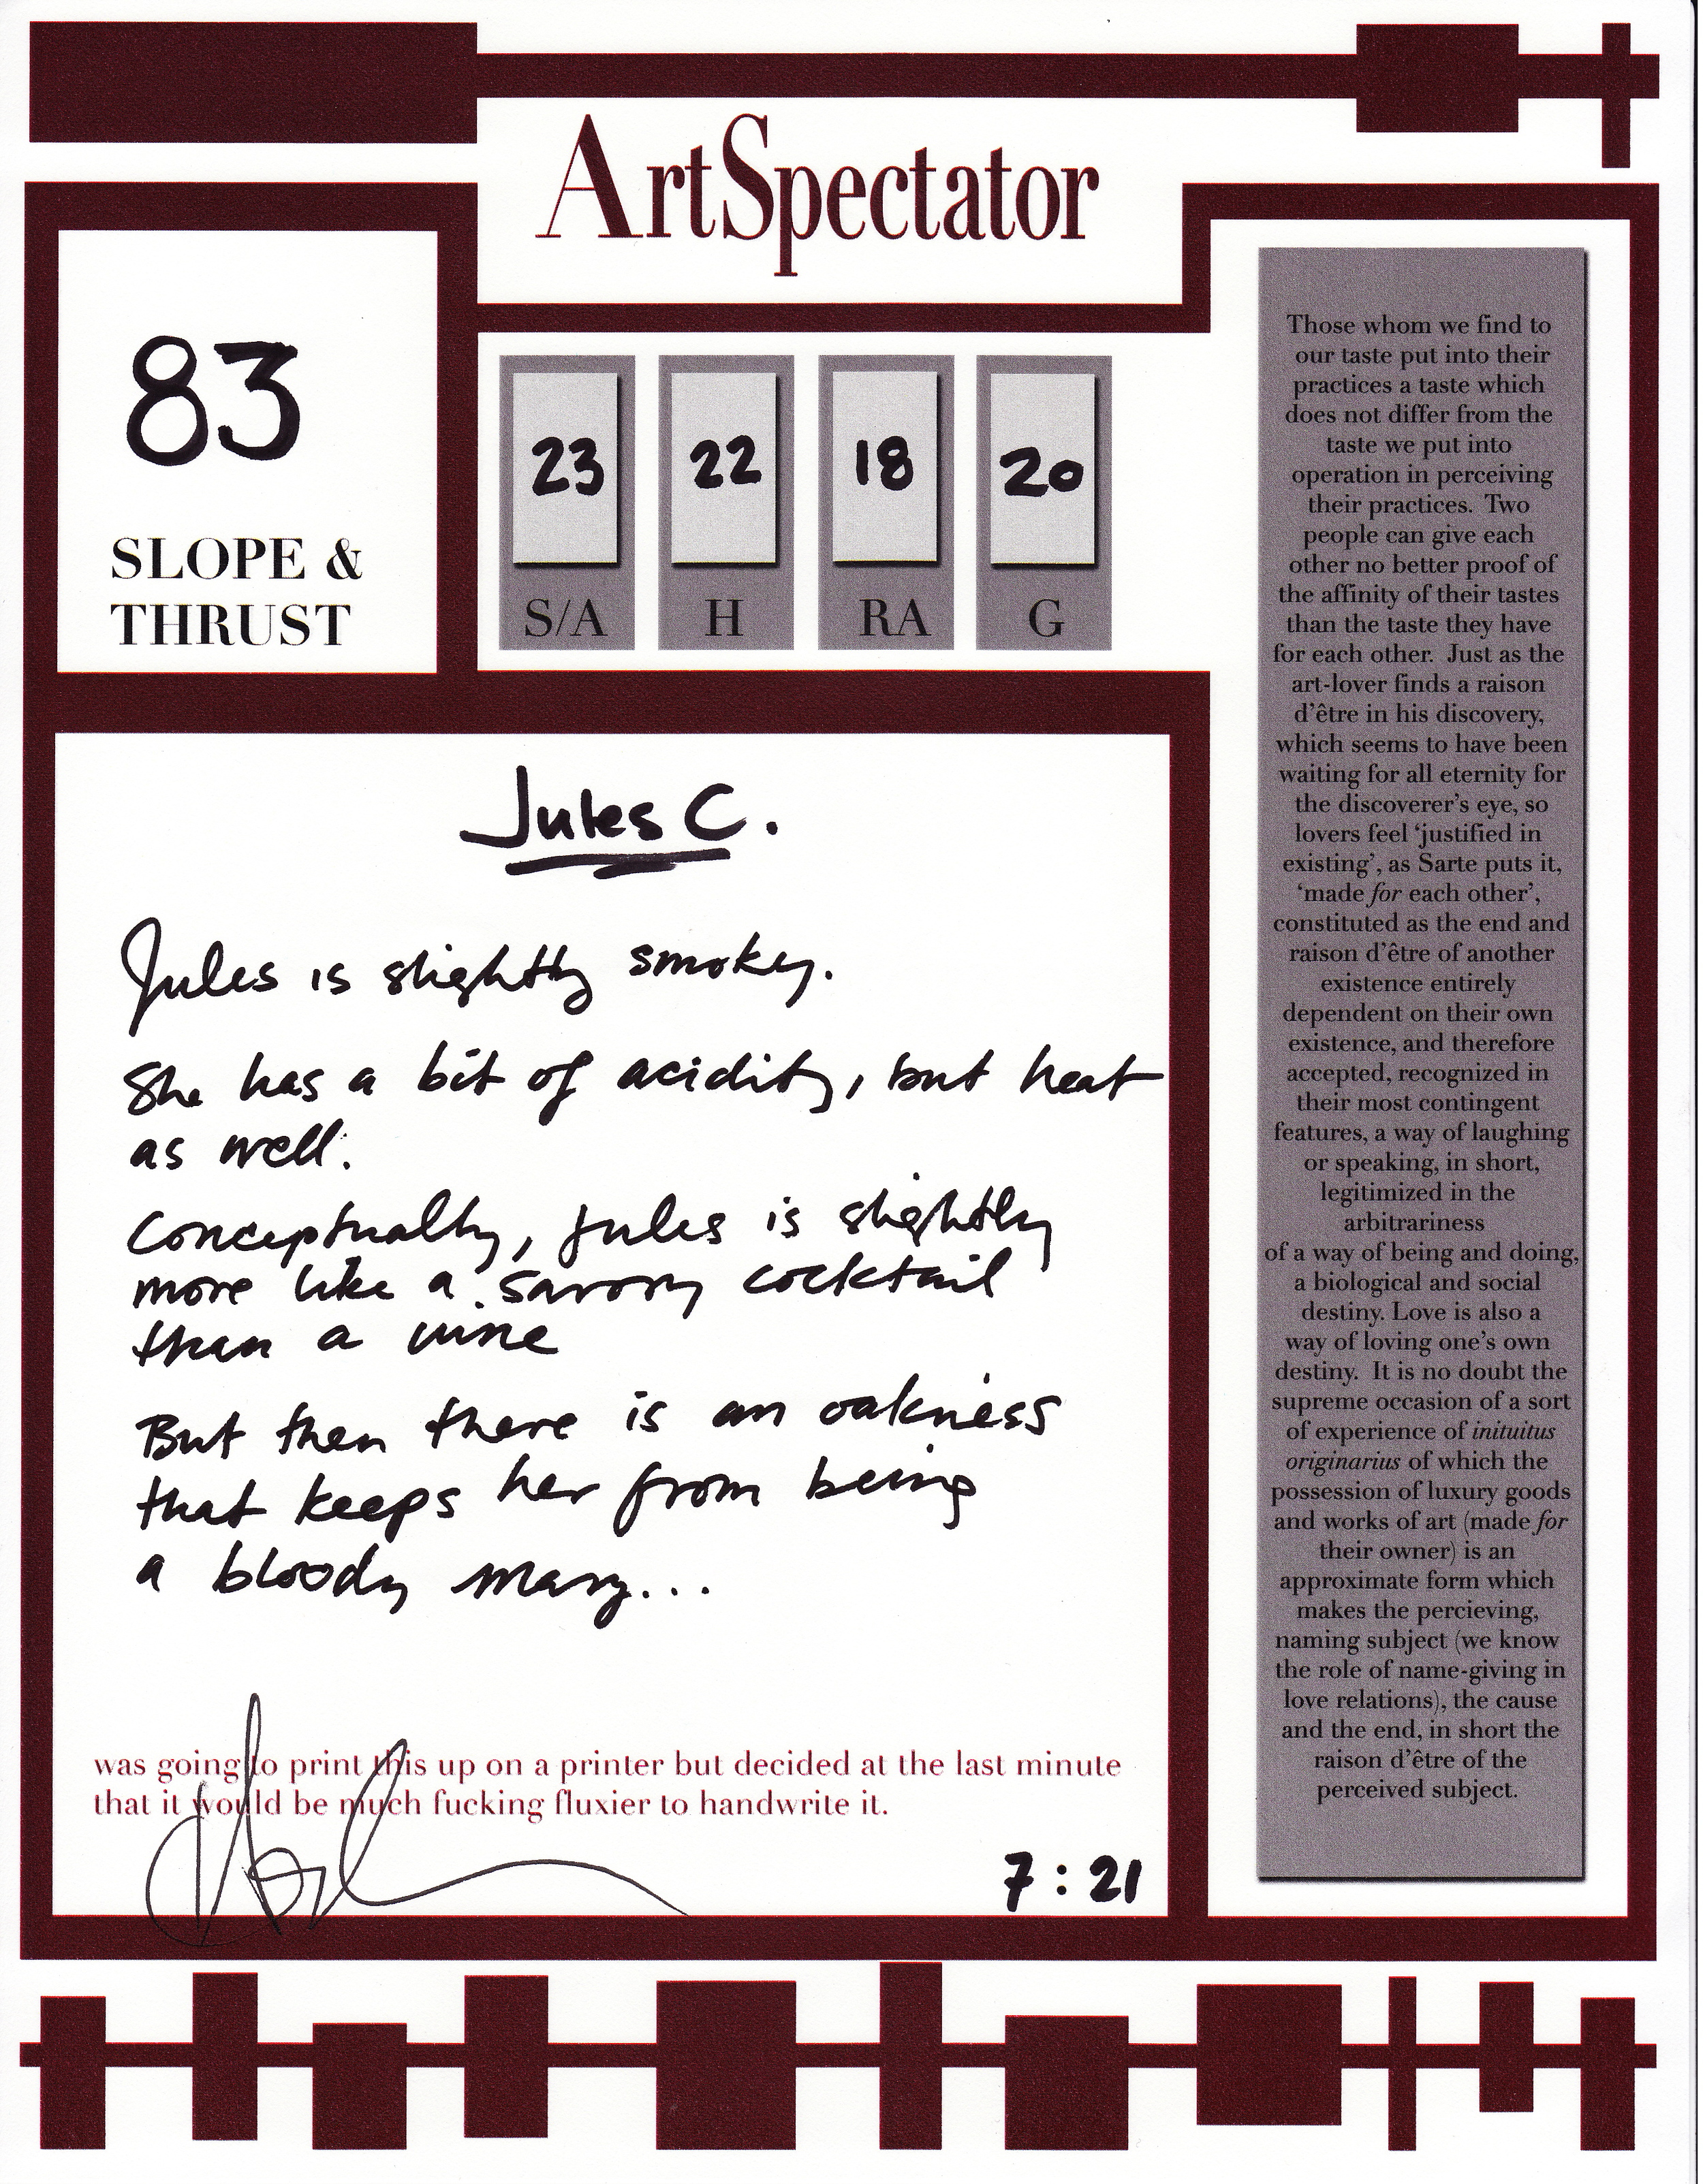 ArtSpectator
83
SLOPE &
THRUST
23
S/A
22
H
18
RA
20
G
Jules C.
Jules is slightly smokey.
She has a bit of acidity, but heat
as well.
Conceptually, Jules is slightly
more like a savory cocktail
than a wine
But then there is an oakiness
that keeps her from being
a bloody mary...
was going to print this up on a printer but decided at the last minute
that it would be much fucking fluxier to handwrite it.
7:21
Those whom we find to
our taste put into their
practices a taste which
does not differ from the
taste we put into
operation in perceiving
their practices. Two
people can give each
other no better proof of
the affinity of their tastes
than the taste they have
for each other. Just as the
art-lover finds a raison
d'être in his discovery,
which seems to have been
waiting for all eternity for
the discoverer's eye, so
lovers feel 'justified in
existing', as Sarte puts it,
'made for each other',
constituted as the end and
raison d'être of another
existence entirely
dependent on their own
existence, and therefore
accepted, recognized in
their most contingent
features, a way of laughing
or speaking, in short,
legitimized in the
arbitrariness
of a way of being and doing,
a biological and social
destiny. Love is also a
way of loving one's own
destiny. It is no doubt the
supreme occasion of a sort
of experience of inituitus
originarius of which the
possession of luxury goods
and works of art (made for
their owner) is an
approximate form which
makes the percieving,
naming subject (we know
the role of name-giving in
love relations), the cause
and the end, in short the
raison d'être of the
perceived subject.